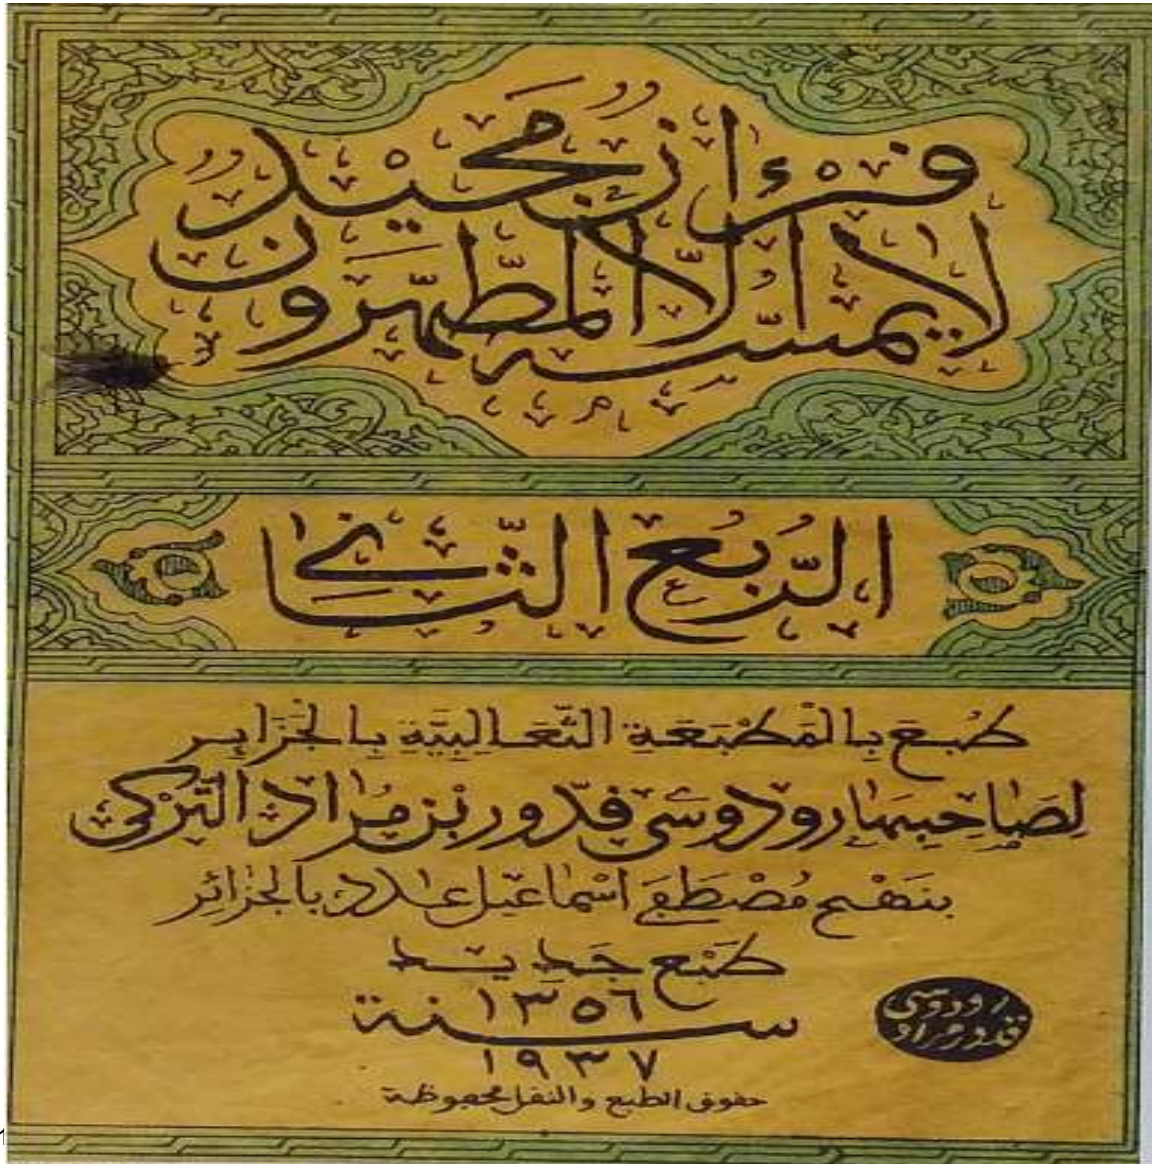 قُرْءَانٌ مَّجِيدٌ
لَا يَمَسُّهُ إِلَّا الْمُطَهَّرُونَ
الرُّبُعُ الثَّانِي
طُبِعَ بِالْمَطْبَعَةِ الثَّعَالِبِيَّةِ بِالْجَزَائِرِ
لِصَاحِبِهَا رودوسي قدّور بن مُراد التّركي
بنهج مُصْطَفَى اسْمَاعيل عدد بالجزائر
طَبْع جَدِيد
١٣٥٦
سنة
١٩٣٧
حقوق الطبع والنقل محفوظة
رودوسي
قدور مراد
1